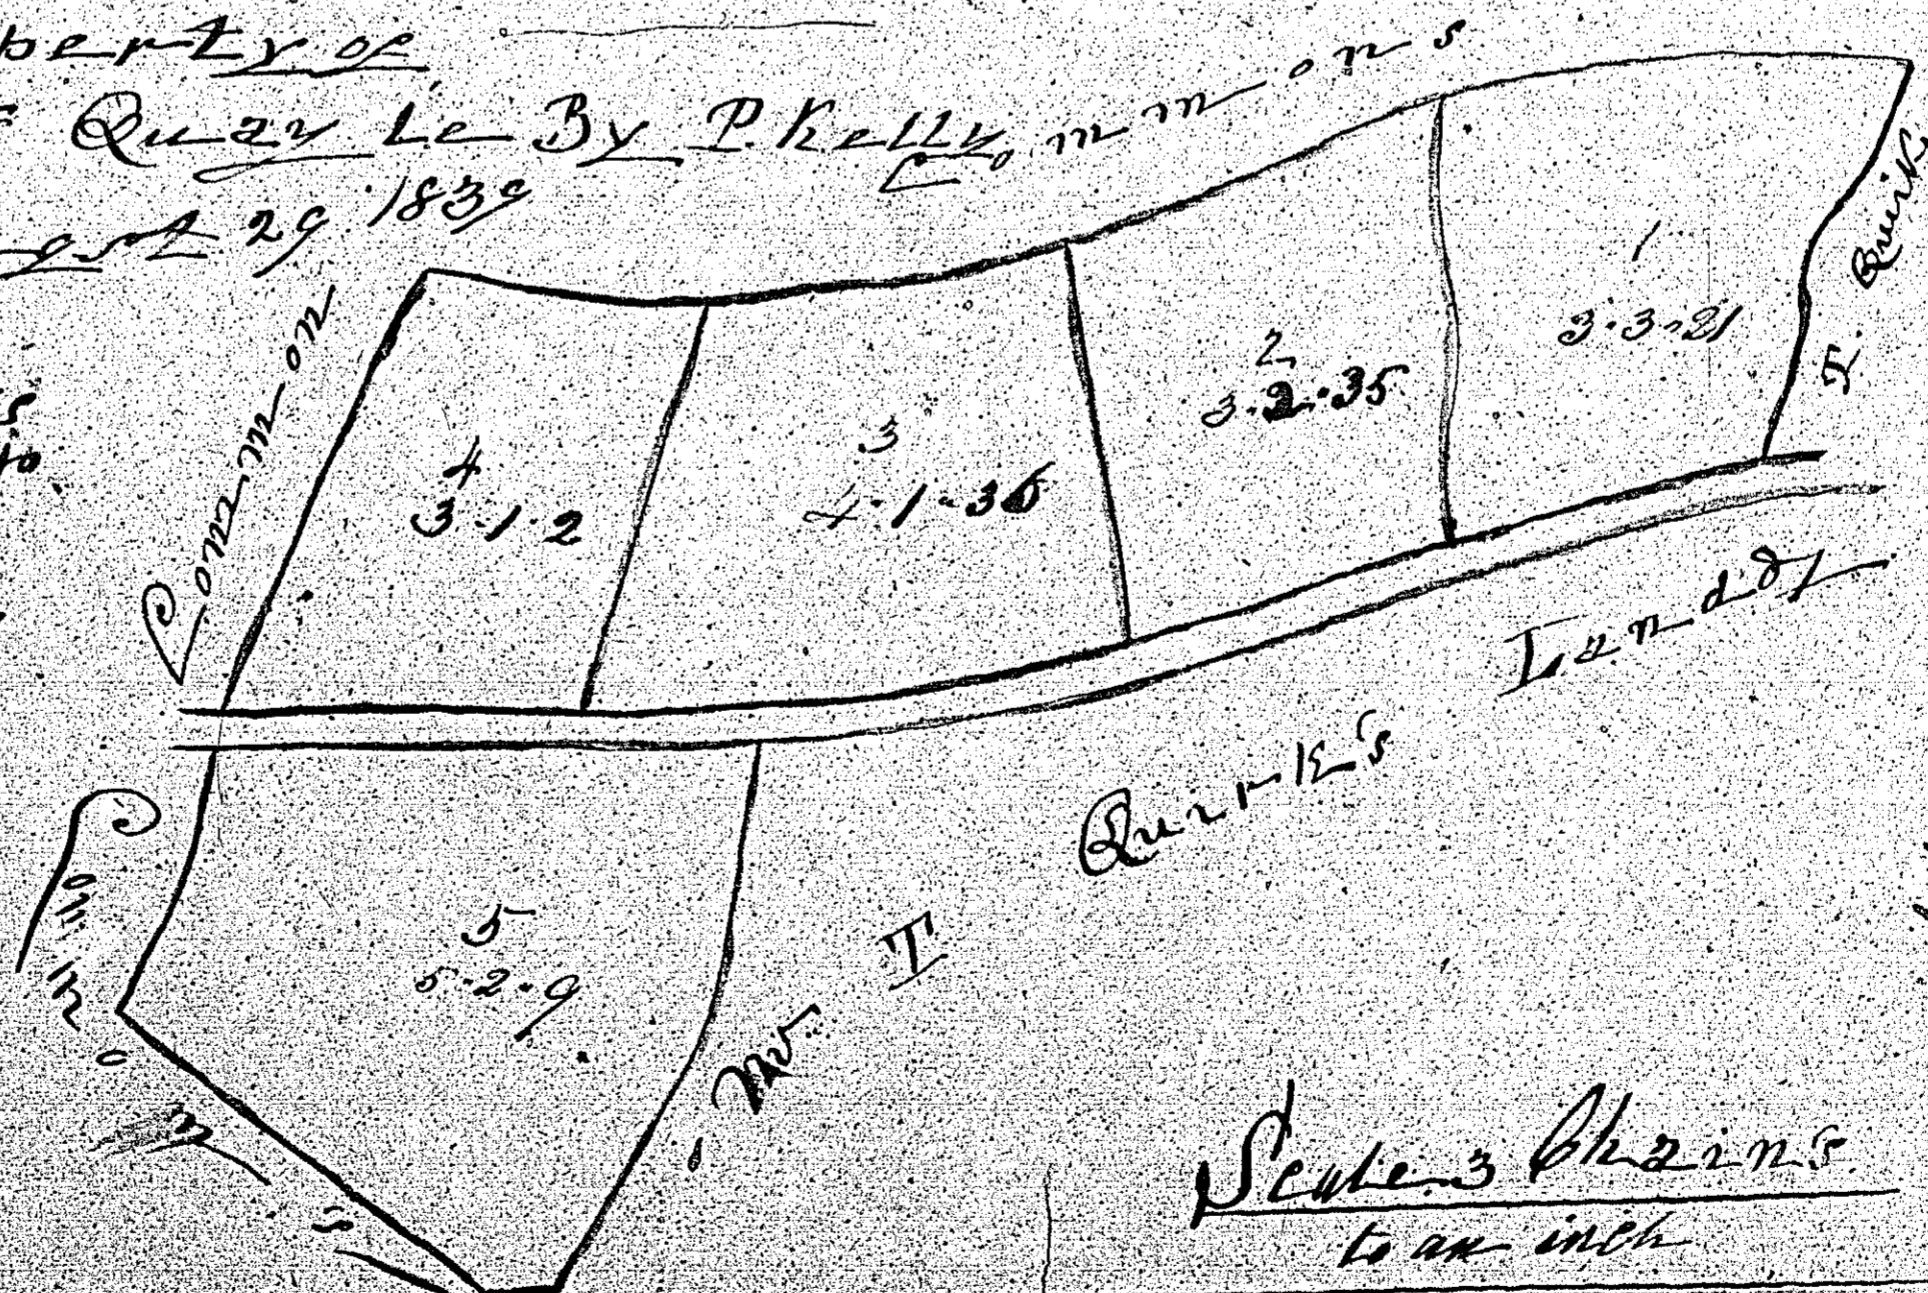 perty of
Quayle By P. Kelly
gst 29 1839
Commons
Common
1
3·3·21
T. Quirk
2
3·2·35
3
4·1·36
4
3·1·2
5
5·2·9
Commons
Mr. T Quirk's Land
Scale 3 Chains
to an inch